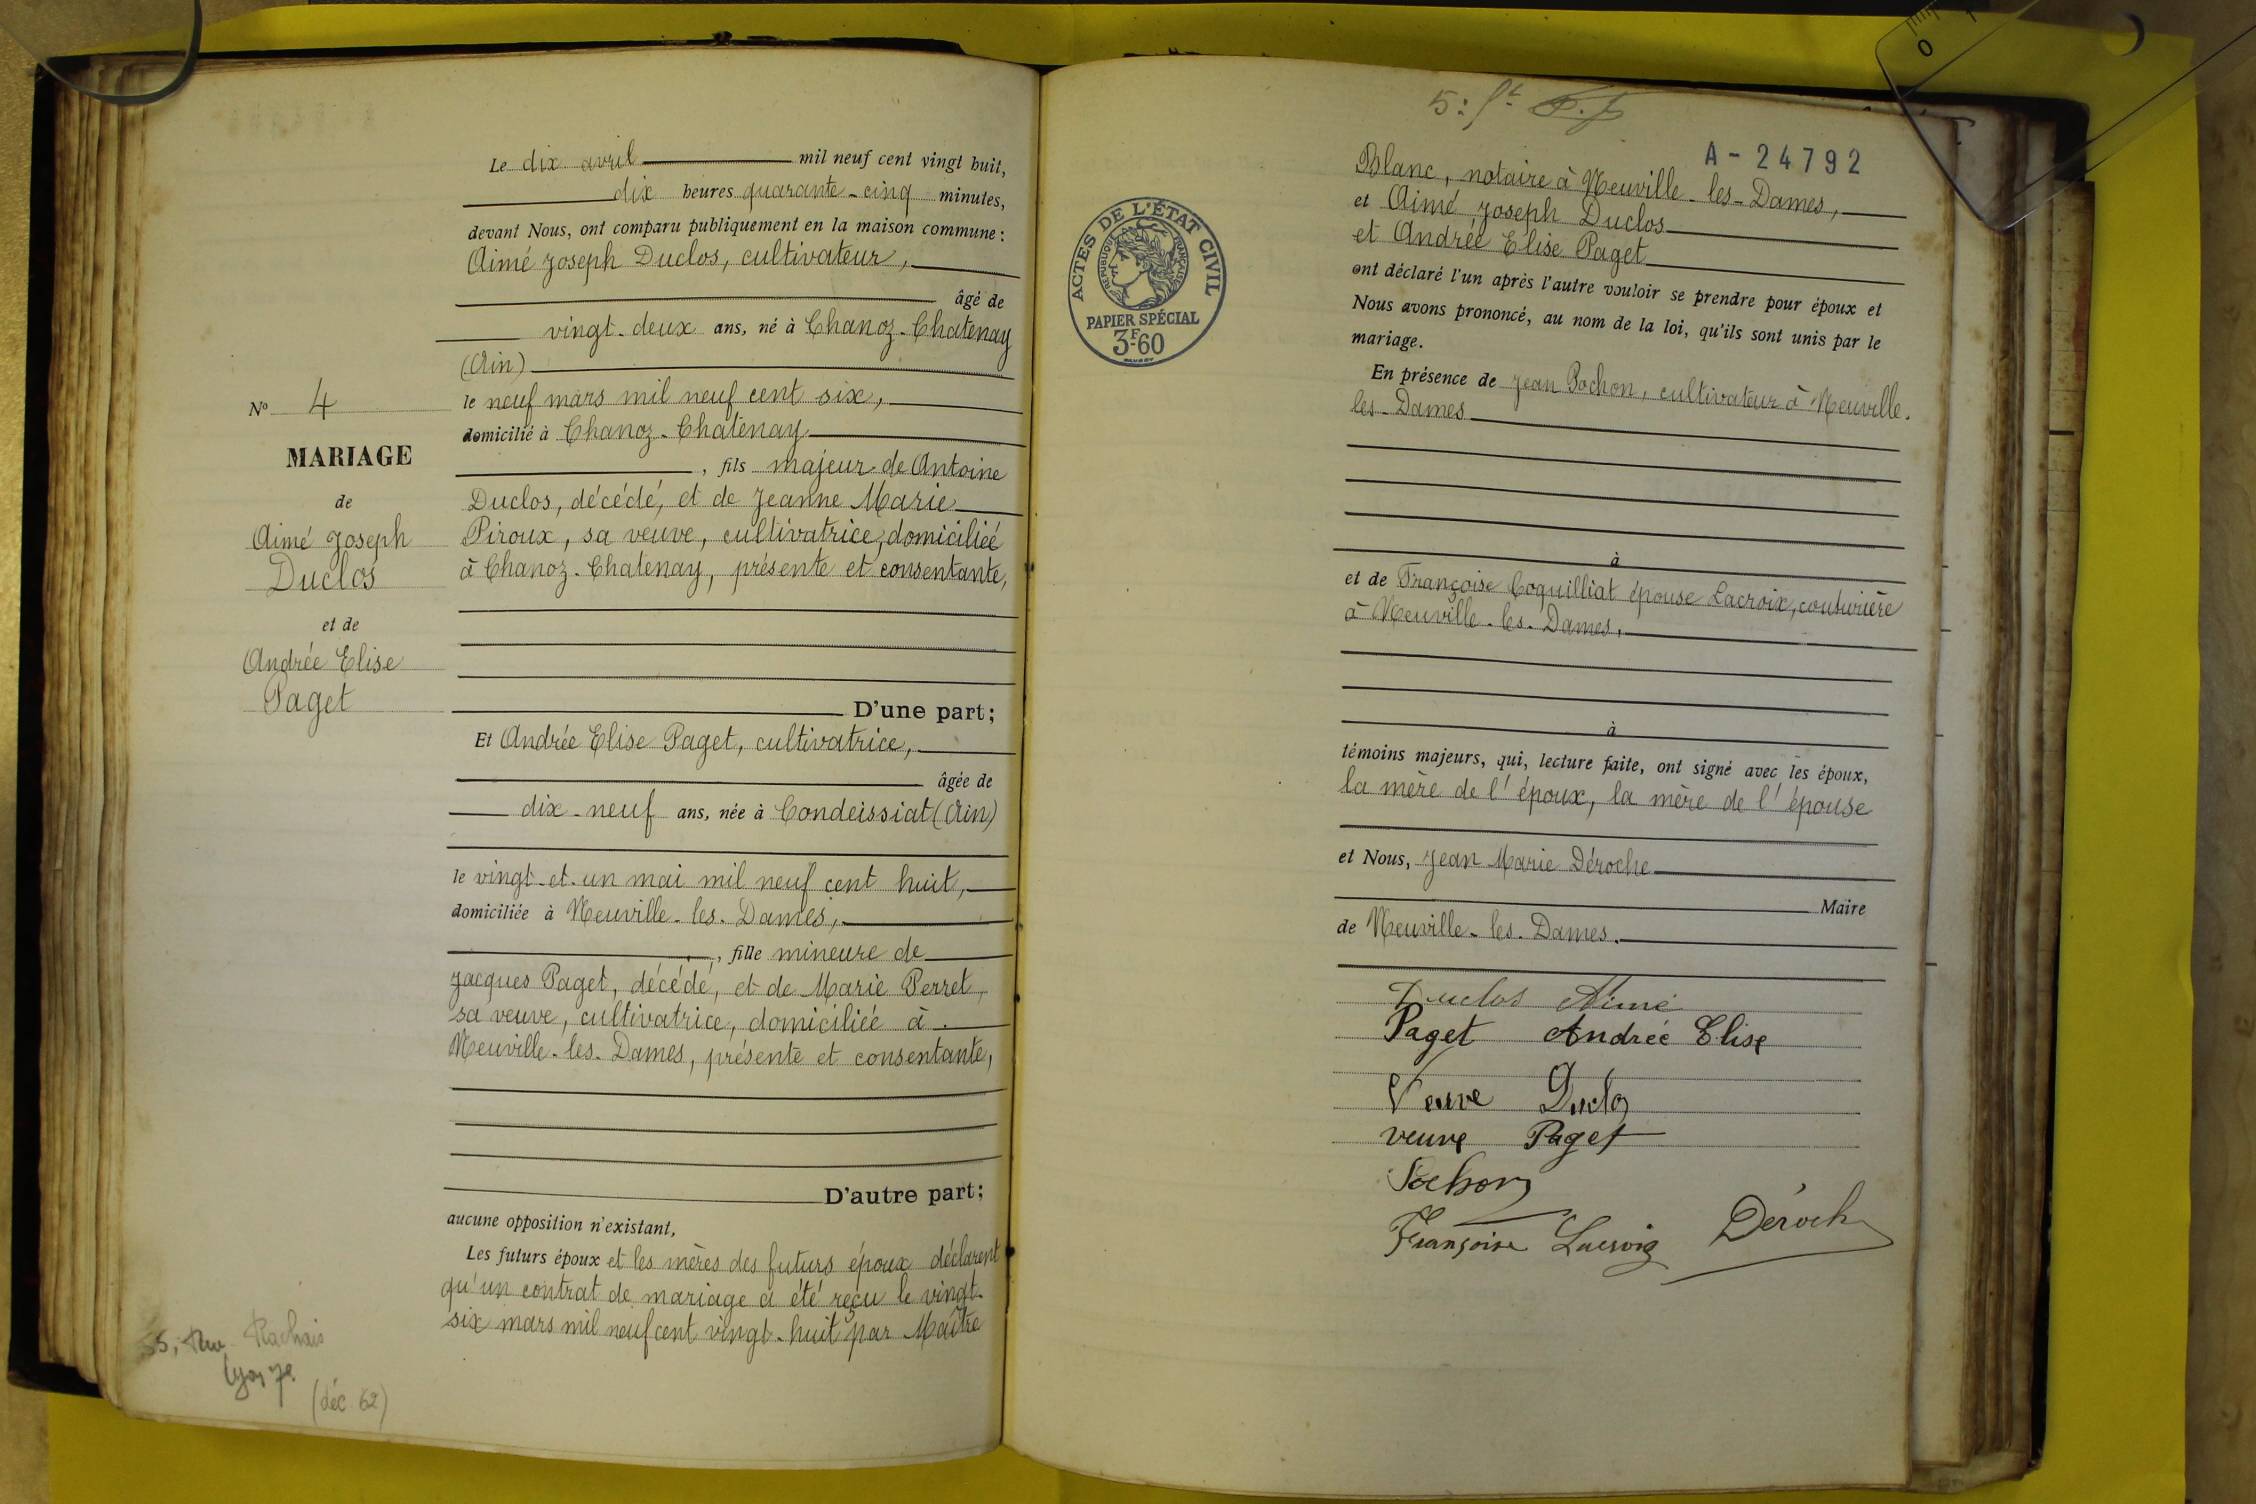 Le dix avril mil neuf cent vingt huit,
dix heures quarante-cinq minutes,
devant Nous, ont comparu publiquement en la maison commune :
Aimé Joseph Duclos, cultivateur,
âgé de
vingt-deux ans, né à Chanoz-Chatenay
(Ain)
le neuf mars mil neuf cent six,
domicilié à Chanoz-Chatenay
, fils majeur de Antoine
Duclos, décédé, et de Jeanne Marie
Piroux, sa veuve, cultivatrice, domiciliée
à Chanoz-Chatenay, présente et consentante,
D'une part;
Et Andrée Elise Paget, cultivatrice,
âgée de
dix-neuf ans, née à Condeissiat (Ain)
le vingt-et-un mai mil neuf cent huit,
domiciliée à Neuville-les-Dames,
, fille mineure de
Jacques Paget, décédé, et de Marie Perret,
sa veuve, cultivatrice, domiciliée à
Neuville-les-Dames, présente et consentante,
D'autre part;
aucune opposition n'existant,
Les futurs époux et les mères des futurs époux déclarent
qu'un contrat de mariage a été reçu le vingt-
six mars mil neuf cent vingt-huit par Maître
No 4
MARIAGE
de
Aimé Joseph
Duclos
et de
Andrée Elise
Paget
55, Rue Rachais
Lyon 7e
(déc 62)
5:
A-24792
ACTES DE L'ÉTAT CIVIL
RÉPUBLIQUE FRANÇAISE
PAPIER SPÉCIAL
3F60
Blanc, notaire à Neuville-les-Dames,
et Aimé Joseph Duclos
et Andrée Elise Paget
ont déclaré l'un après l'autre vouloir se prendre pour époux et
Nous avons prononcé, au nom de la loi, qu'ils sont unis par le
mariage.
En présence de Jean Bochon, cultivateur à Neuville-
les-Dames
à
et de Françoise Coquilliat épouse Lacroix, couturière
à Neuville-les-Dames,
à
témoins majeurs, qui, lecture faite, ont signé avec les époux,
la mère de l'époux, la mère de l'épouse
et Nous, Jean Marie Déroche
Maire
de Neuville-les-Dames.
Duclos Aimé
Paget Andrée Elise
Veuve Duclos
veuve Paget
Bochon
Françoise Lacroix
Déroche
0 1